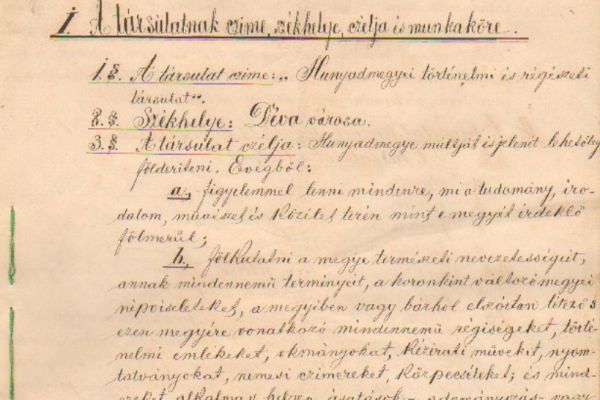 I. A társulatnak czime, székhelye, czélja és munkaköre.
1. §. A társulat czime: „Hunyadmegyei történelmi és régészeti
társulat".
2. §. Székhelye: Déva városa.
3. §. A társulat czélja: Hunyadmegye multját és jelenét lehetőleg
földeriteni. E végből:
a., figyelemmel lenni mindenre, mi a tudomány, iro-
dalom, művészet és közélet terén mint e megyét érdeklő
fölmerül;
b., fölkutatni a megye természeti nevezetességeit,
annak mindennemű terményeit, a koronkint változó megyei
népviseleteket, a megyében vagy bárhol elszórtan létező s
ezen megyére vonatkozó mindennemű régiségeket, törté-
nelmi emlékeket, okmányokat, kézirati műveket, nyom-
tatványokat, nemesi czimereket, körpecséteket; és mind-
ezeket alkalmas helyen ásatások, adományzás